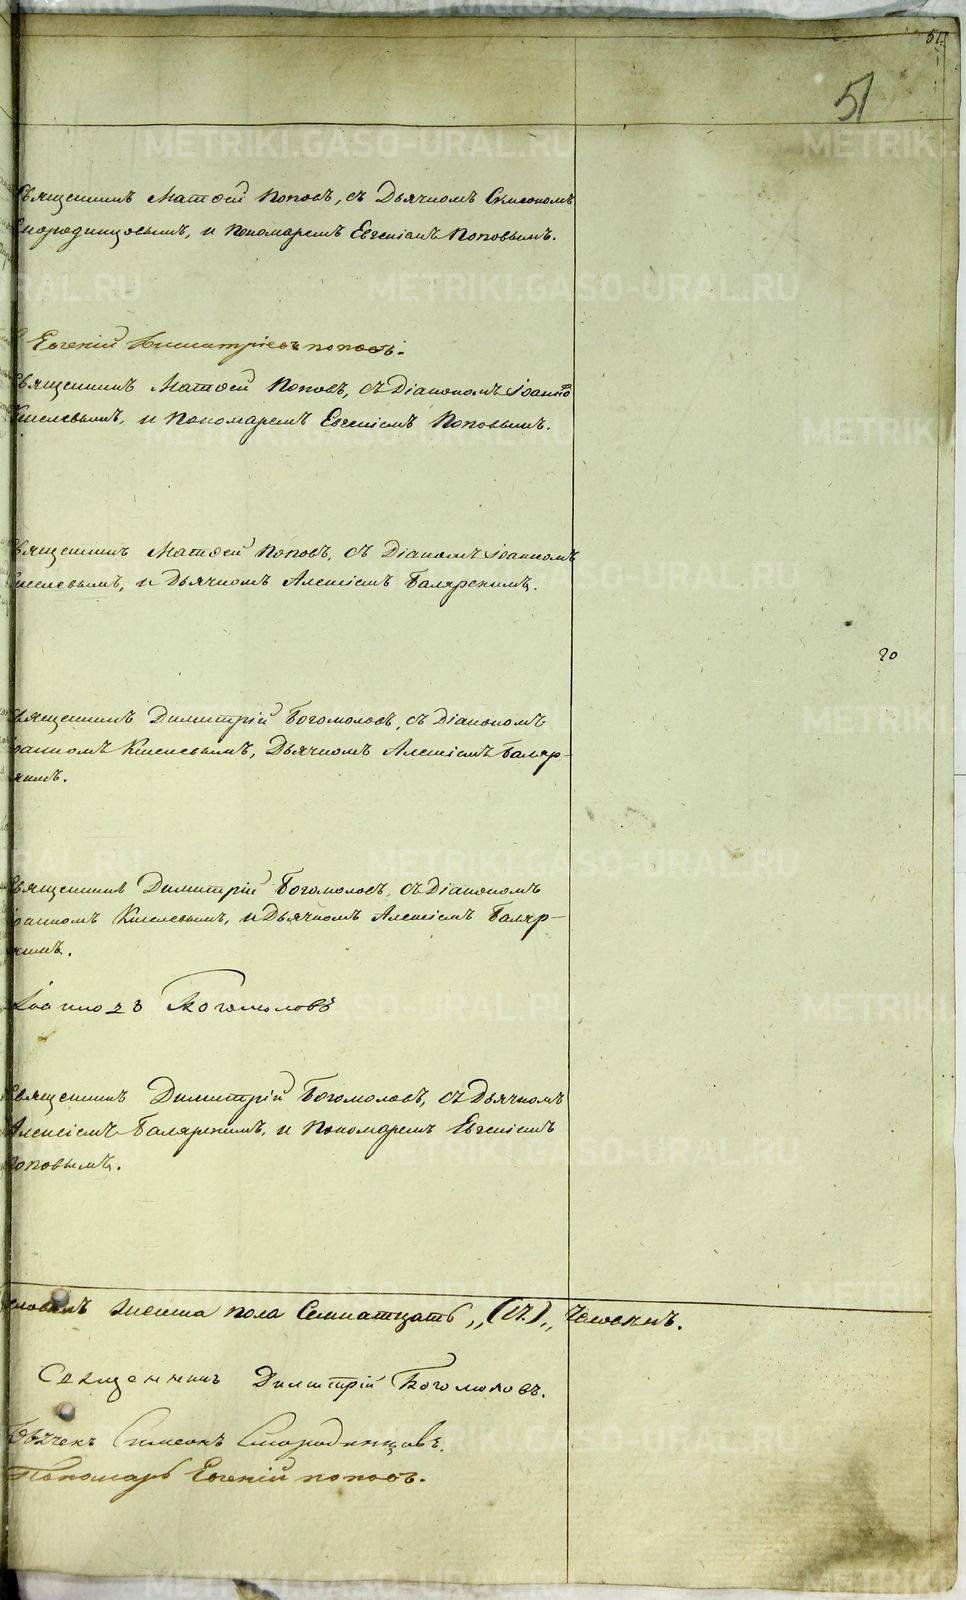 51.
51
Священникъ Матѳей Поповъ, съ Дьячкомъ Симеономъ
Смородинцовымъ, и Пономаремъ Евгеніемъ Поповымъ.
Евгеній Димитріевъ Поповъ.
Священникъ Матѳей Поповъ, съ Діакономъ Іоанно
Киселевымъ, и Пономаремъ Евгеніемъ Поповымъ.
Священникъ Матѳей Поповъ, съ Діакономъ Іоанномъ
Киселевымъ, и Дьячкомъ Алексіемъ Балярскимъ.
20
Священникъ Димитрій Богомоловъ, съ Діакономъ
Іоанномъ Киселевымъ, Дьячкомъ Алексіемъ Баляр-
скимъ.
Священникъ Димитрій Богомоловъ, съ Діакономъ
Іоанномъ Киселевымъ, и Дьячкомъ Алексіемъ Баляр-
скимъ.
Богомоловъ
Священникъ Димитрій Богомоловъ, съ Дьячкомъ
Алексіемъ Балярскимъ, и Пономаремъ Евгеніемъ
Поповымъ.
женска пола Семнатцать „(17.)„ Человекъ.
Священникъ Димитрій Богомоловъ.
Дьячекъ Симеонъ Смородинцовъ.
Пономарь Евгеній Поповъ.
METRIKI.GASO-URAL.RU